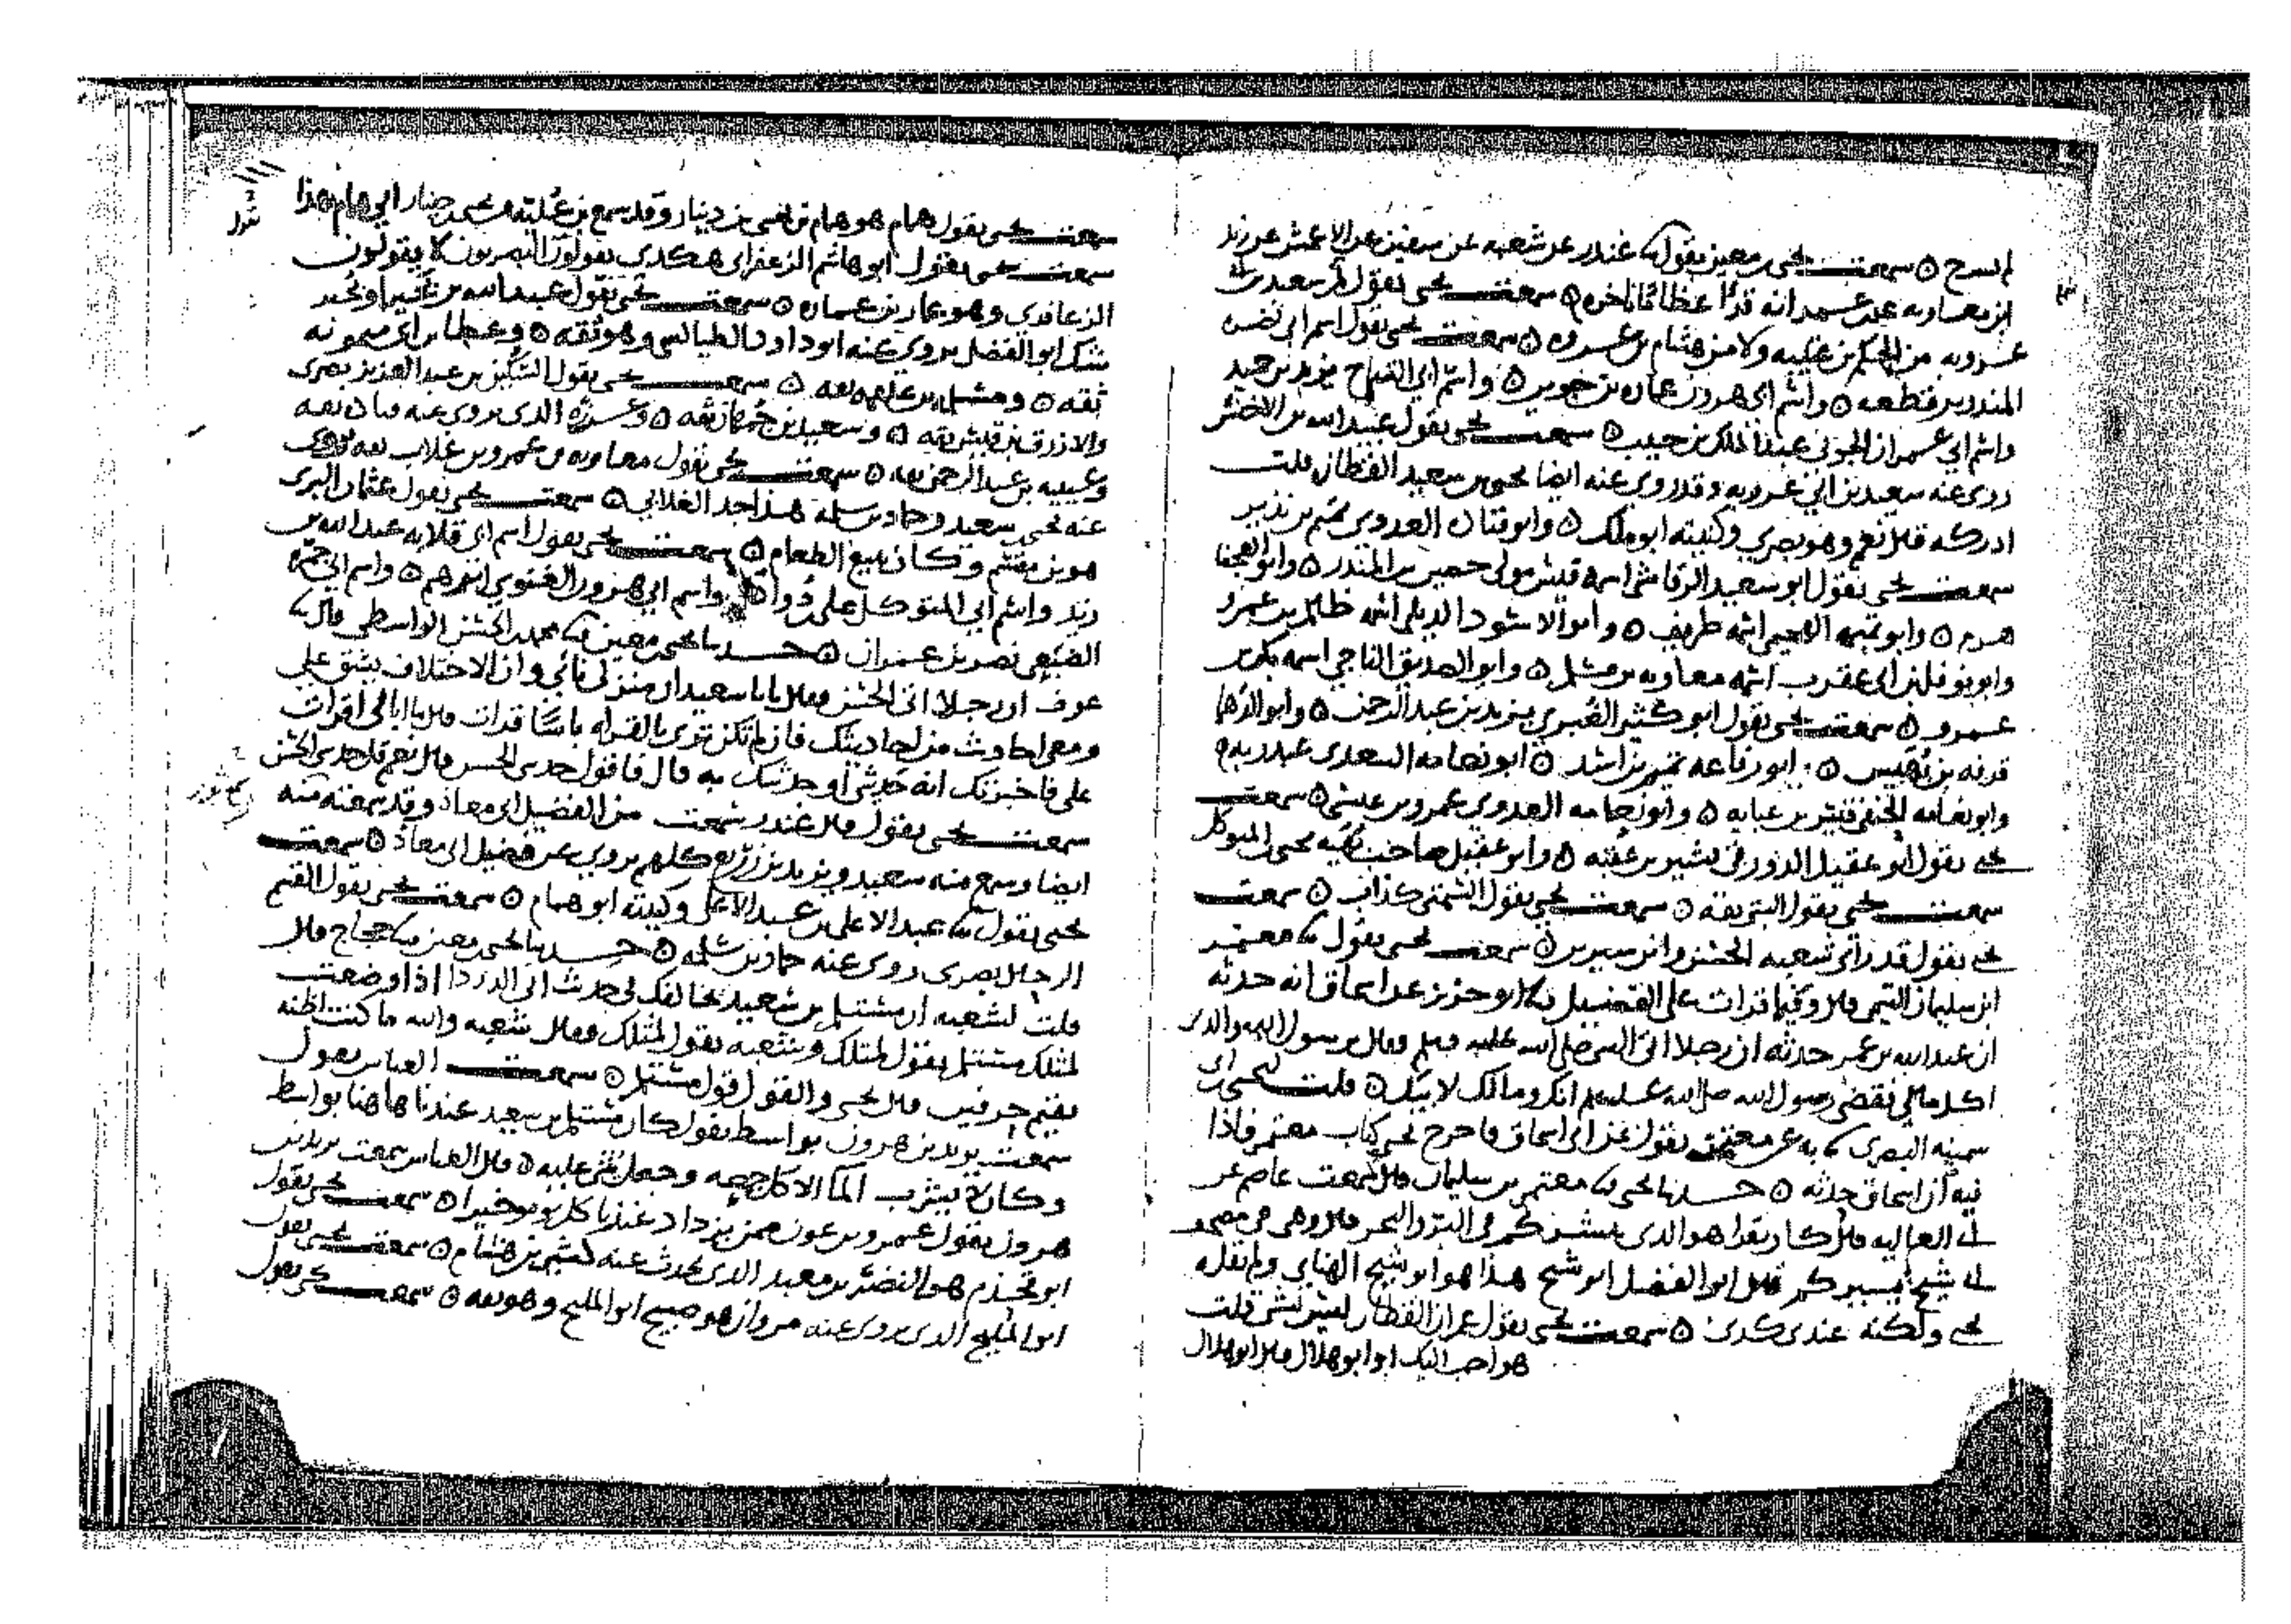 لم يسرح ٥ سمعت يحيى بن معين يقول نا غندر عن شعبه عن سفين عن الاعمش عن زيد
ابن معاويه عن انه قرا عظاما ناخره ٥ سمعت يحيى يقول لم سعيد بن
عروبه من الحكم بن عتيبه ولا من هشام بن عروه ٥ سمعت يحيى يقول اسم ابي نضره
المنذر بن قطعه ٥ واسم ابي هرون عماره بن جوين ٥ واسم ابي التياح يزيد بن حميد
واسم ابي عمران الجوني عبد الملك بن حبيب ٥ سمعت يحيى يقول عبيد الله بن الاخنس
روى عنه سعيد بن ابي عروبه وقد روى عنه ايضا يحيى بن سعيد القطان قلت
ادركه قال نعم وهو بصري وكنيته ابو ملك ٥ وابو قتاده العدوي تميم بن نذير
سمعت يحيى يقول ابو سعيد الرقاشي اسمه قيس مولى حصين بن المنذر ٥ وابو العجفا
هرم ٥ وابو تميمه الهجيمي اسمه طريف ٥ وابو الاسود الديلي اسمه ظالم بن عمرو
وابو نوفل بن ابي عقرب اسمه معاويه بن مسلم ٥ وابو الصديق الناجي اسمه بكر بن
عمرو ٥ سمعت يحيى يقول ابو كثير الغبري يزيد بن عبد الرحمن ٥ وابو الدهما
قرفه بن بهيس ٥ ابو رفاعه تميم بن اسد ٥ ابو نعامه السعدي عبد ربه
وابو نعامه الحنفي قيس بن عبايه ٥ وابو نعامه العدوي عمرو بن عيسى ٥ سمعت
يحيى يقول ابو عقيل الدورقي بشير بن عقبه ٥ وابو عقيل صاحب بهيه يحيى بن المتوكل
سمعت يحيى يقول البتي ثقه ٥ سمعت يحيى يقول السمتي كذاب ٥ سمعت
يحيى يقول قد راى شعبه الحسن وابن سيرين ٥ سمعت يحيى يقول نا معتمر
ابن سليمن التيمي قال وفيما قرات على الفضيل نا ابو حريز عن ابي اسحاق انه حدثه
ان عبد الله بن عمر حدثه ان رجلا اتى النبي صلى الله عليه وسلم فقال يرسول الله والدي
اكل مالي فقضى رسول الله صلى الله عليه وسلم انك ومالك لابيك ٥ قلت ليحيى ان
سمينه البصري نا به عن معتمر يقول عن ابي اسحاق فاخرج يحيى كتاب معتمر فاذا
فيه ان اسحاق حدثه ٥ حدثنا يحيى نا معتمر بن سليمان قال سمعت عاصم عن
ابي العاليه قال كان يقرا هو الذي ينشركم في البر والبحر قال وهي في مصحف
ابي شيخ يسيركم قال ابو الفضل ابو شيخ هذا هو ابو شيخ الهنائي ولم يقله
يحيى ولكنه عندي كذي ٥ سمعت يحيى يقول عمران القطان ليس بشي قلت
هو احب اليك او ابو هلال قال ابو هلال
سمعت يحيى يقول همام هو همام بن يحيى بن دينار وقد سمع بن عليه من يحيى بن دينار ابي همام هذا
سمعت يحيى يقول ابو هاشم الزعفراني هكذي يقولون البصريون لا يقولون
الزعافري وهو عمار بن عماره ٥ سمعت يحيى يقول عبيد الله بن
شك ابو الفضل يروي عنه ابو داود الطيالسي وهو ثقه ٥ وعطا بن ابي ميمونه
ثقه ٥ ٥ سمعت يحيى يقول السكن بن عبد العزيز بصري
والازرق بن قيس ثقه ٥ وسعيد بن جمهان ثقه ٥ وعزره الذي يروي عنه قتاده ثقه
وعيينه بن عبد الرحمن ثقه ٥ سمعت يحيى يقول معاويه بن عمرو بن غلاب ثقه
عنه يحيى بن سعيد وحماد بن سلمه هذا جد الغلابي ٥ سمعت يحيى يقول عثمان البري
هو بن مقسم وكان يبيع الطعام ٥ سمعت يحيى يقول اسم ابي قلابه عبد الله بن
زيد واسم ابي المتوكل علي بن دواد واسم ابي هرون الغنوي ابرهيم ٥ واسم ابي جمره
الضبعي نصر بن عمران ٥ حدثنا يحيى بن معين نا محمد بن الحسن الواسطي قال نا
عوف ان رجلا اتى الحسن فقال يا با سعيد ان منزلي نائي وان الاختلاف يشق علي
ومعي احاديث من احاديثك فان لم تكن ترى بالقراه باسا قرات قال ما ابالي اقرات
علي فاخبرتك انه حديثي او حدثتك به قال فاقول حدثني الحسن قال نعم قل حدثني الحسن
سمعت يحيى يقول قال غندر سمعت من الفضيل ابي معاذ وقد سمعته منه
ايضا وسمع منه سعيد ويزيد بن زريع كلهم يروي عن فضيل ابي معاذ ٥ سمعت
يحيى يقول نا عبد الاعلى بن عبد الاعلى وكنيته ابو همام ٥ سمعت يحيى يقول القسم
الرحال بصري روى عنه حماد بن سلمه ٥ حدثنا يحيى بن معين نا حجاج قال
قلت لشعبه ان مستلم بن سعيد يخالفك في حديث ابي الدردا اذا وضعت
لمثلك مستلم يقول لمثلك وشعبه يقول لمثلك فقال شعبه والله ما كنت اظنه
يقيم حرفين قال يحيى والقول قول مستلم ٥ سمعت العباس يقول
سمعت يزيد بن هرون بواسط يقول كان مستلم بن سعيد عندنا هاهنا بواسط
وكان لا يشرب الما الا كل جمعه وجعل يثني عليه ٥ قال العباس سمعت يزيد بن
هرون يقول عمرو بن عون ممن يزداد عندنا كل يوم خيرا ٥ سمعت يحيى يقول
ابو قحذم هو النضر بن معبد الذي يحدث عنه كثير بن هشام ٥ سمعت يحيى يقول
ابو المليح الذي يروي عنه مروان هو صبيح ابو المليح وهو ثقه ٥ سمعت يحيى يقول